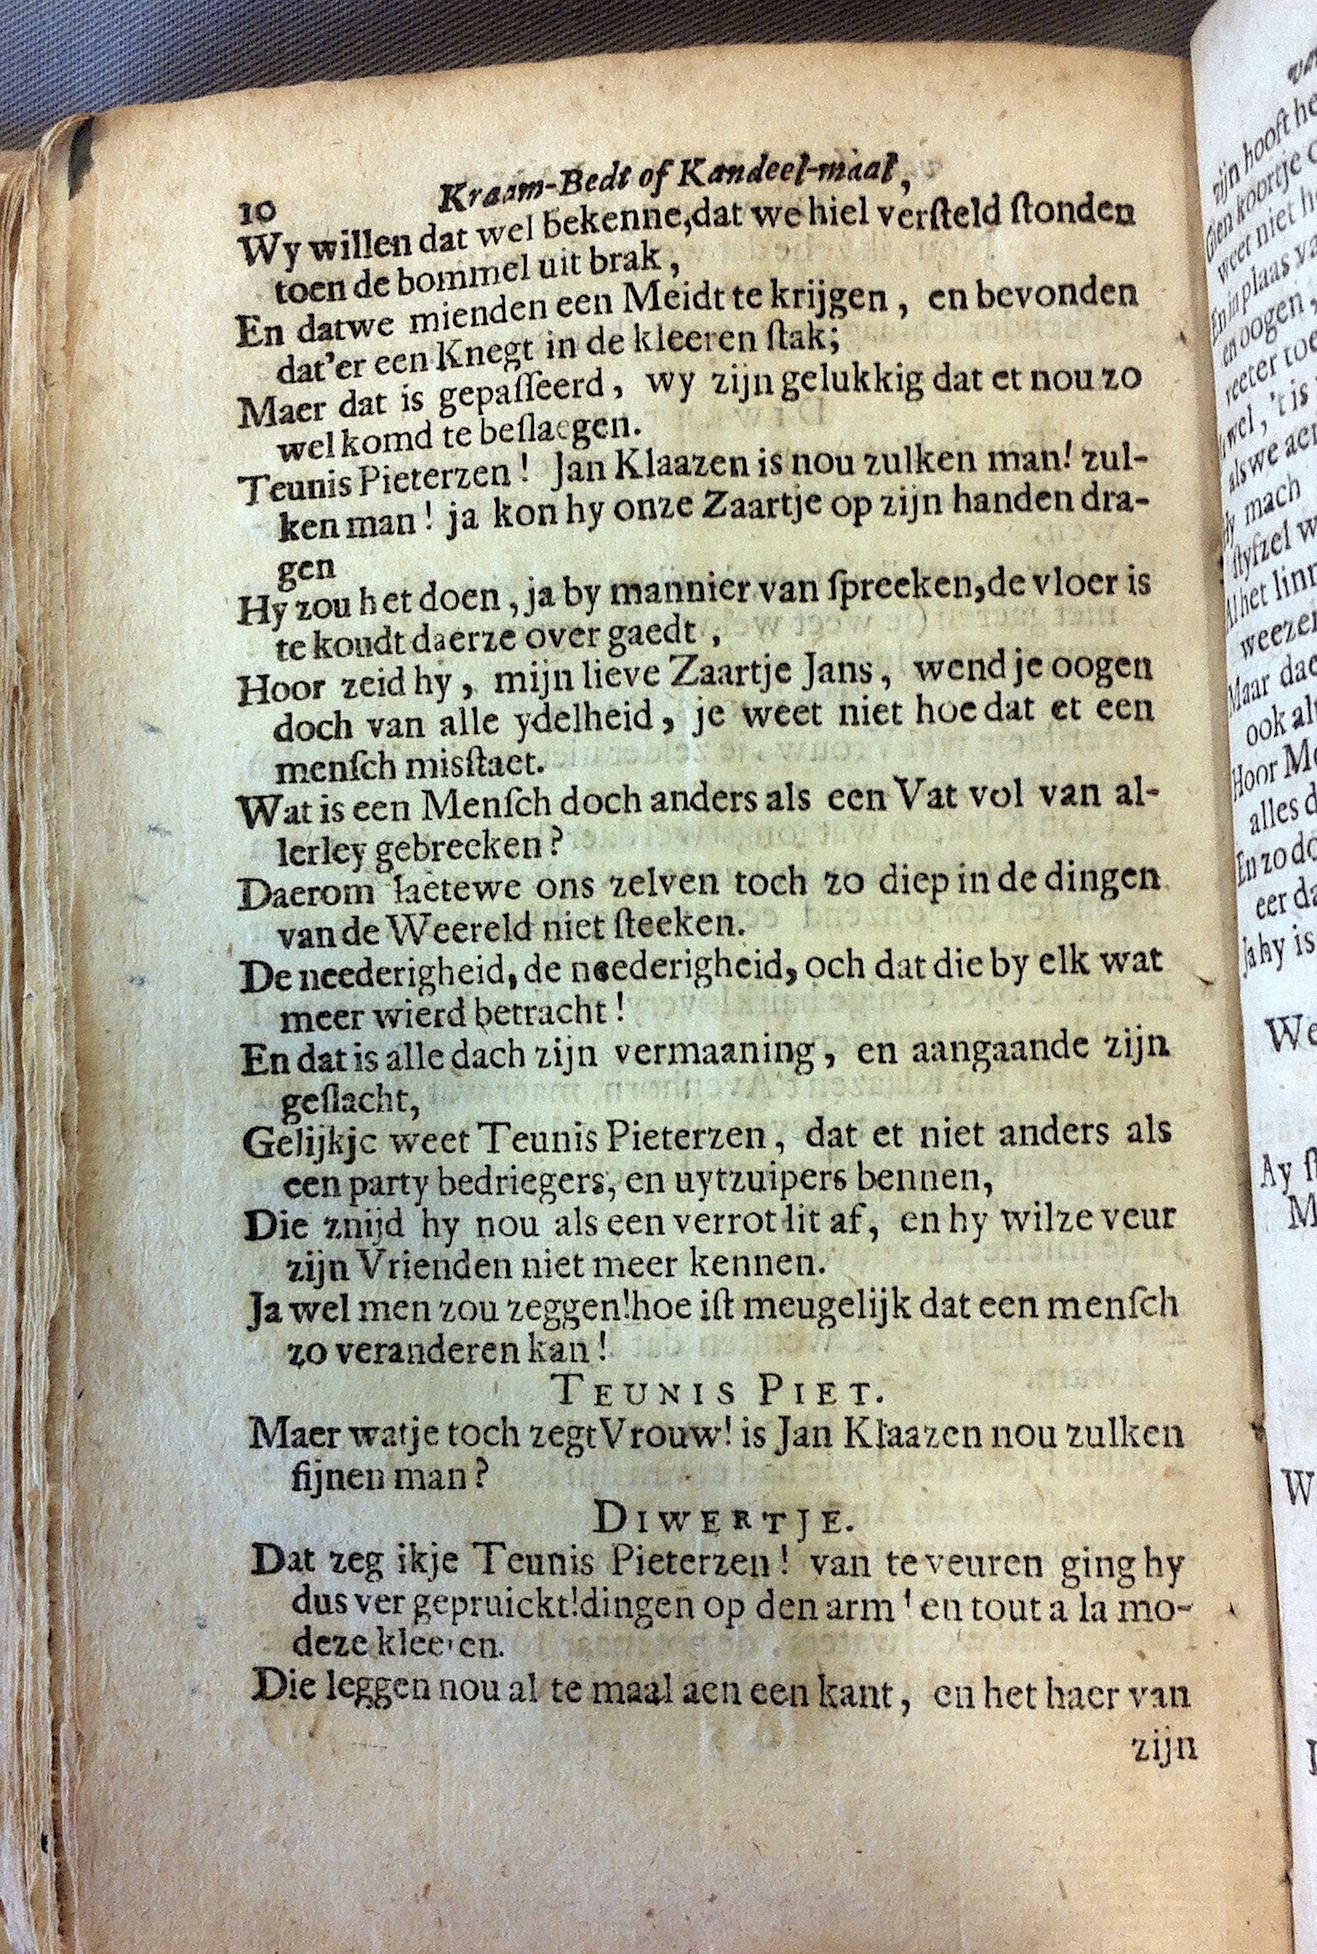 10 Kraam-Bedt of Kandeel-maal,
Wy willen dat wel bekenne,dat we hiel verſteld ſtonden
toen de bommel uit brak,
En datwe mienden een Meidt te krijgen, en bevonden
dat'er een Knegt in de kleeren ſtak;
Maer dat is gepaſſeerd, wy zijn gelukkig dat et nou zo
wel komd te beſlaegen.
Teunis Pieterzen! Jan Klaazen is nou zulken man! zul-
ken man! ja kon hy onze Zaartje op zijn handen dra-
gen
Hy zou het doen, ja by mannier van ſpreeken,de vloer is
te koudt daerze over gaedt,
Hoor zeid hy, mijn lieve Zaartje Jans, wend je oogen
doch van alle ydelheid, je weet niet hoe dat et een
menſch misſtaet.
Wat is een Menſch doch anders als een Vat vol van al-
lerley gebreeken?
Daerom laetewe ons zelven toch zo diep in de dingen
van de Weereld niet ſteeken.
De neederigheid, de neederigheid, och dat die by elk wat
meer wierd betracht!
En dat is alle dach zijn vermaaning, en aangaande zijn
geſlacht,
Gelijkje weet Teunis Pieterzen, dat et niet anders als
een party bedriegers, en uytzuipers bennen,
Die znijd hy nou als een verrot lit af, en hy wilze veur
zijn Vrienden niet meer kennen.
Ja wel men zou zeggen!hoe iſt meugelijk dat een menſch
zo veranderen kan!
TEUNIS PIET.
Maer watje toch zegt Vrouw! is Jan Klaazen nou zulken
fijnen man?
DIWERTJE.
Dat zeg ikje Teunis Pieterzen! van te veuren ging hy
dus ver gepruickt!dingen op den arm! en tout a la mo-
deze kleeren.
Die leggen nou al te maal aen een kant, en het haer van
zijn
zijn hooft
koortje
weet niet
En in plaas
en oogen,
toe
wel, 't is
als we
mach
ſtyfzel
het
Maar
ook
Hoor
alles
En zo
eer
Ja hy is
We
Ay
M
W